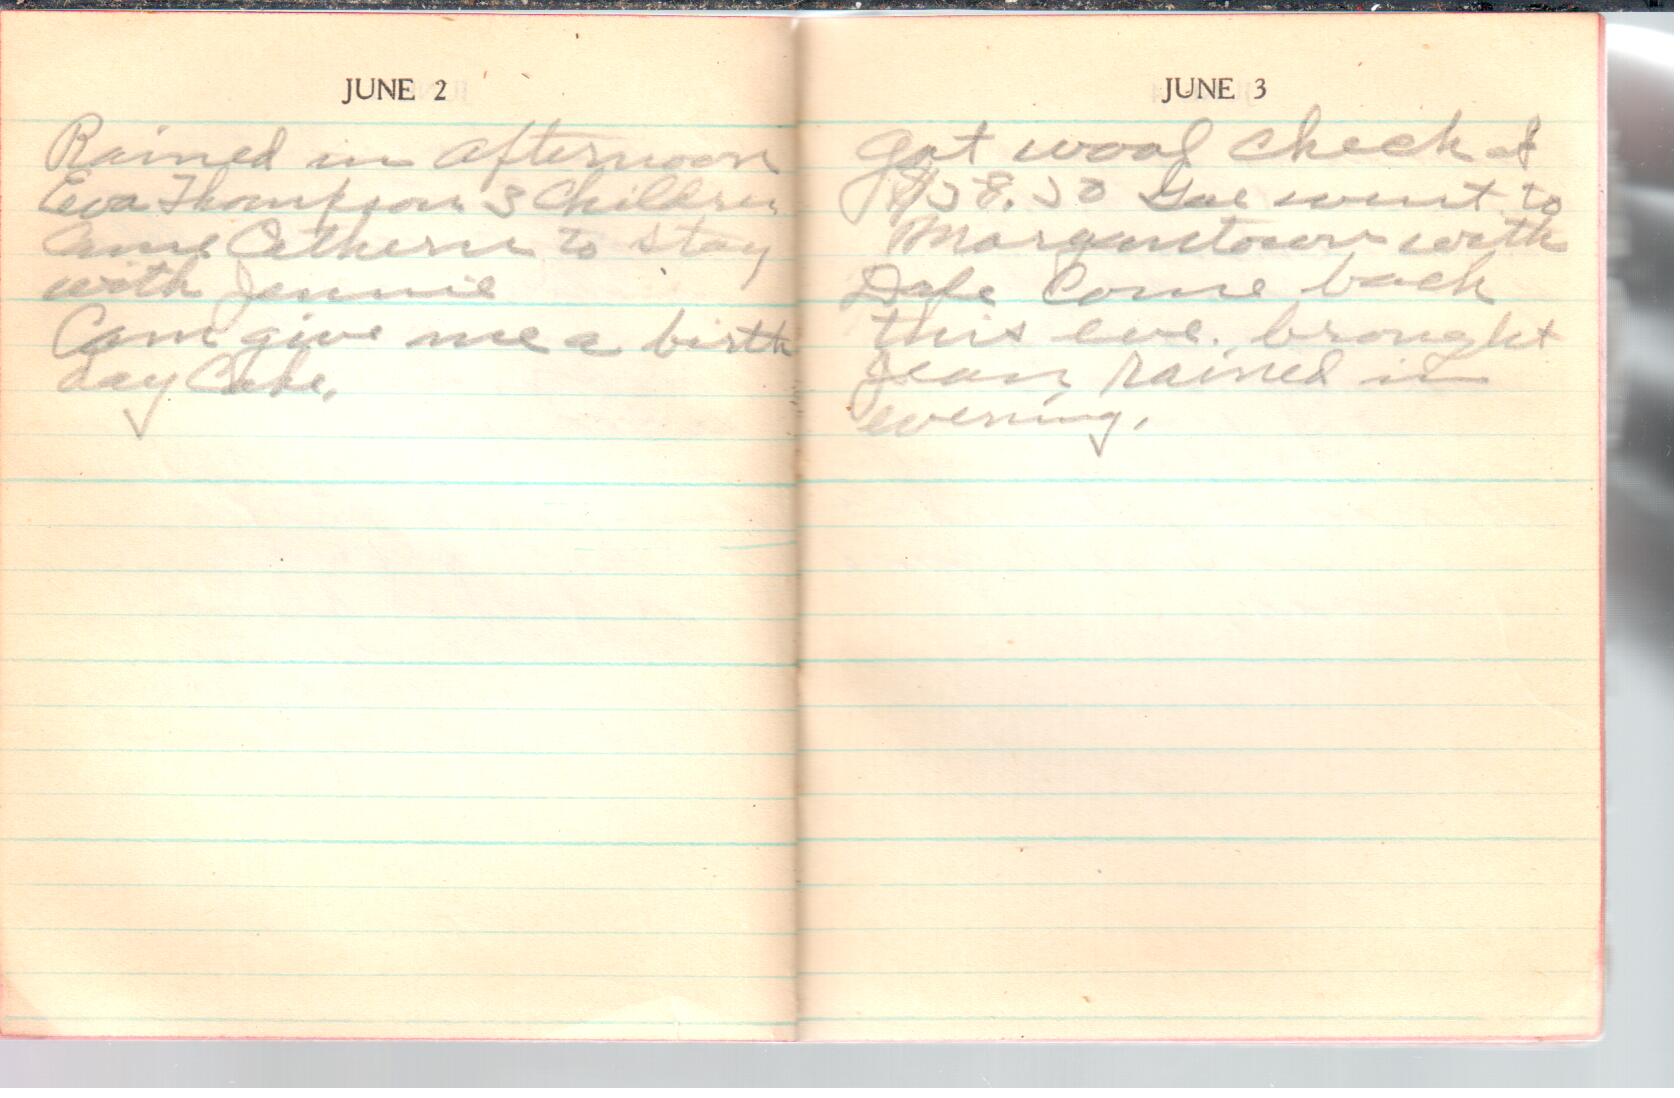 JUNE 2
Rained in afternoon
Eva Thompson 3 Children
Came Cathern to stay
with Jennie
Cam give me a birth
day Cake.
JUNE 3
got wool check of
went to
Morgantown with
Dale Come back
this eve. brought
Jean rained in
evening.